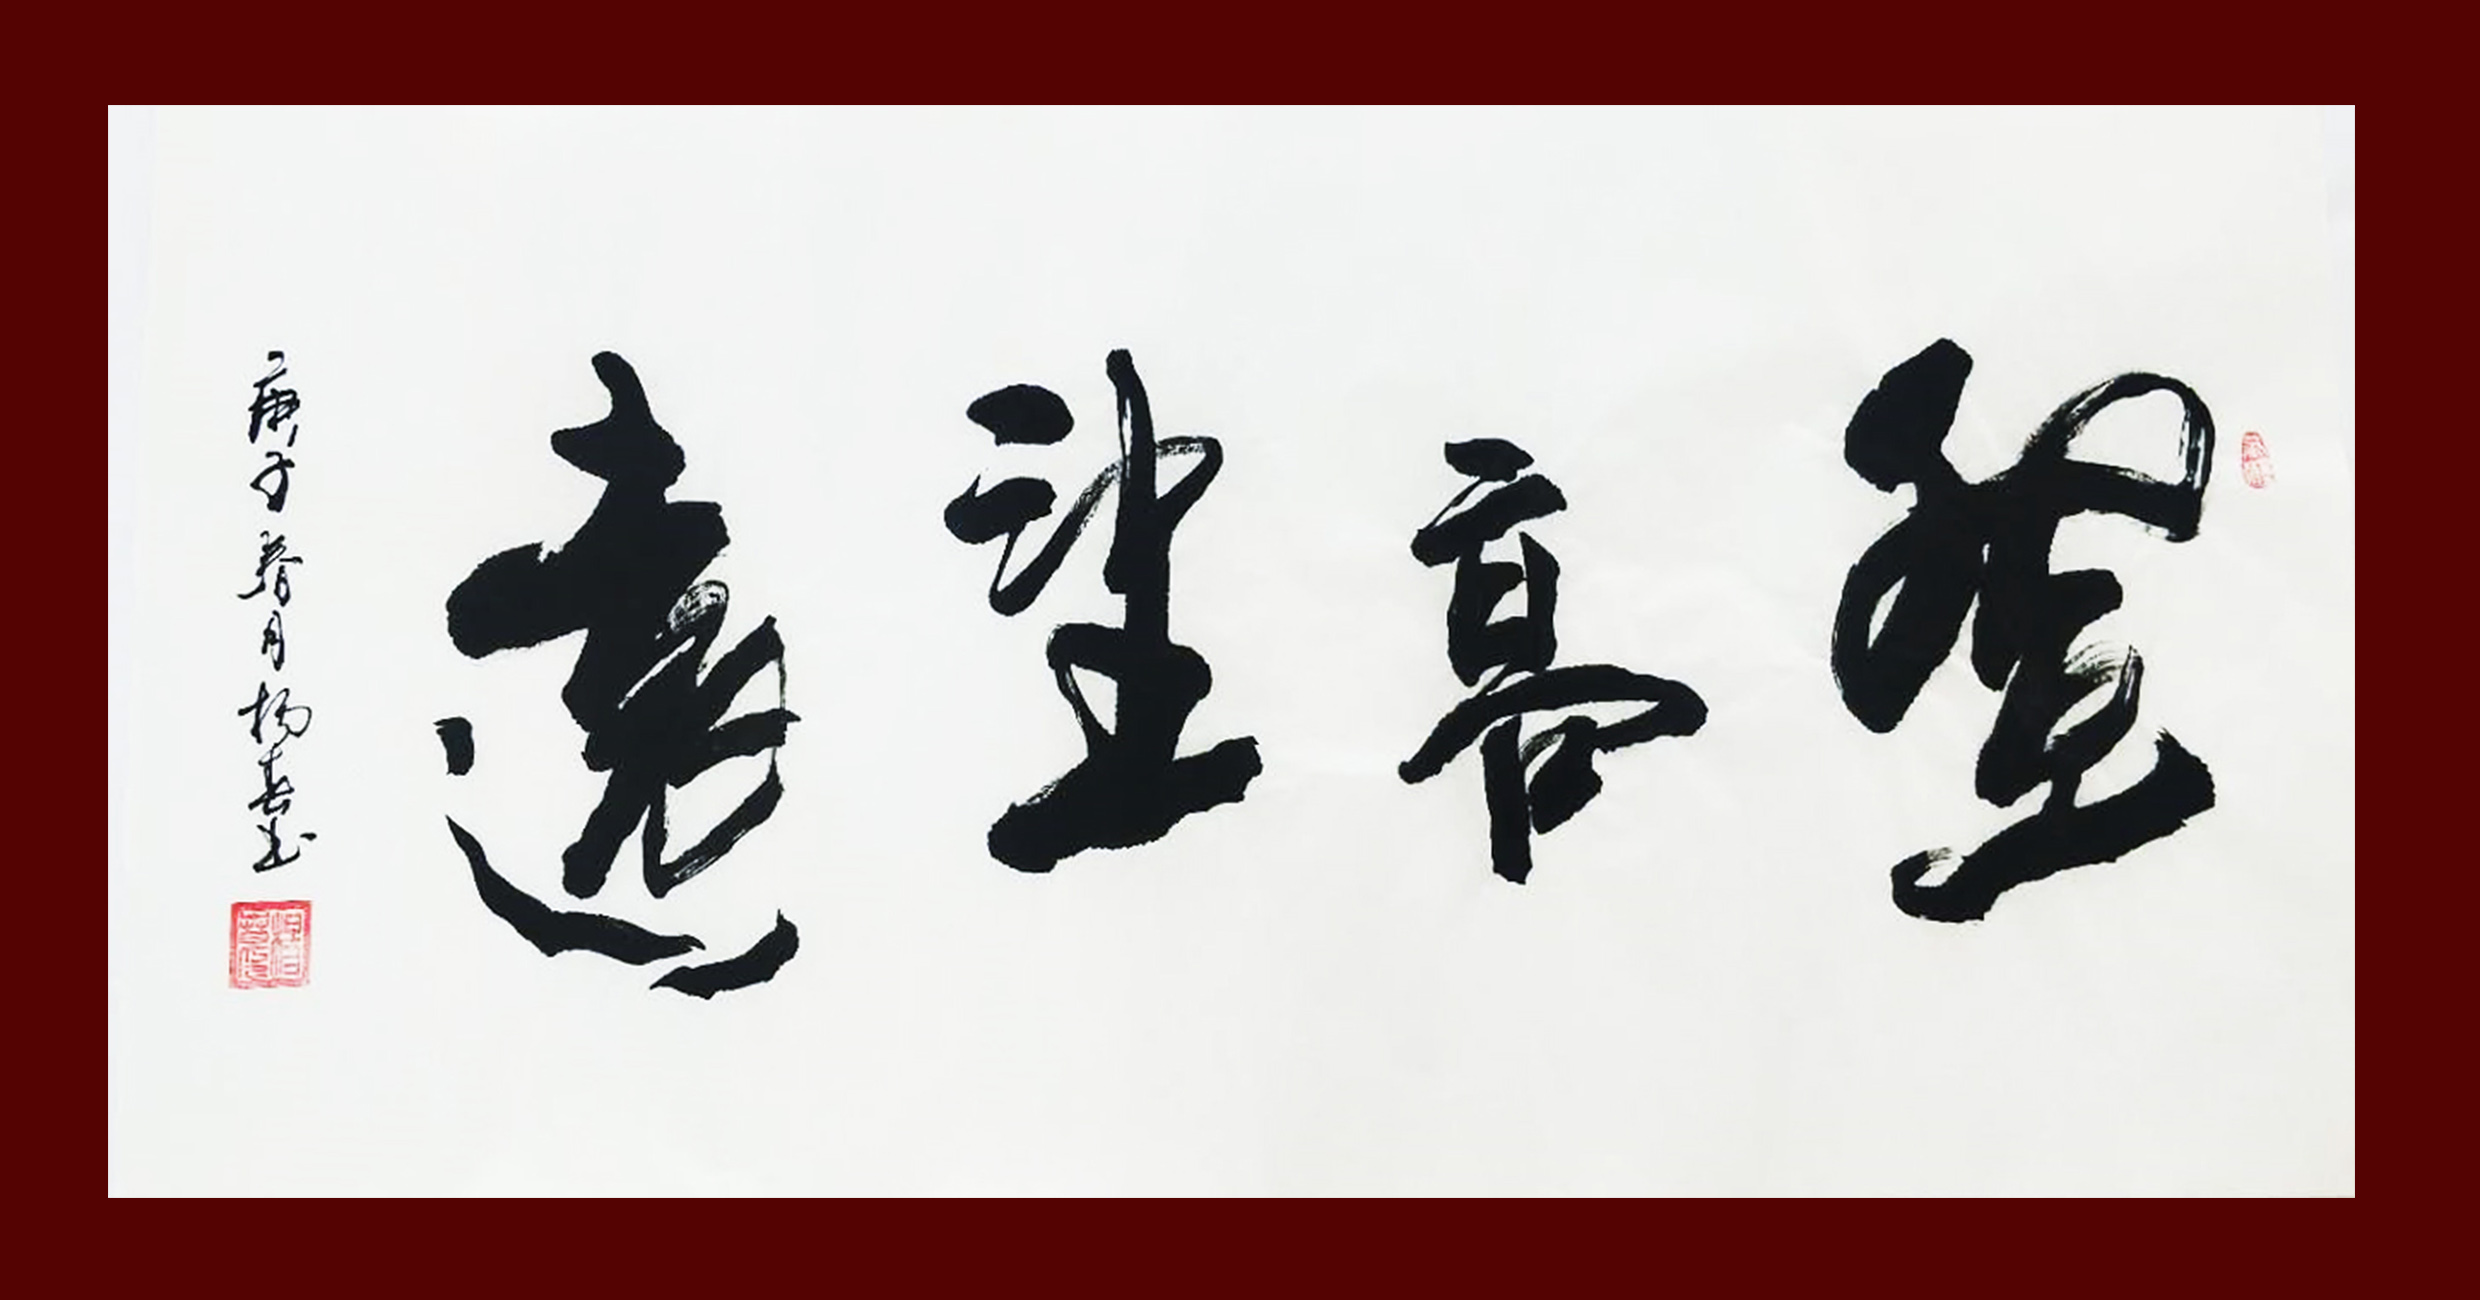 登高望遠
庚子春月楊春书